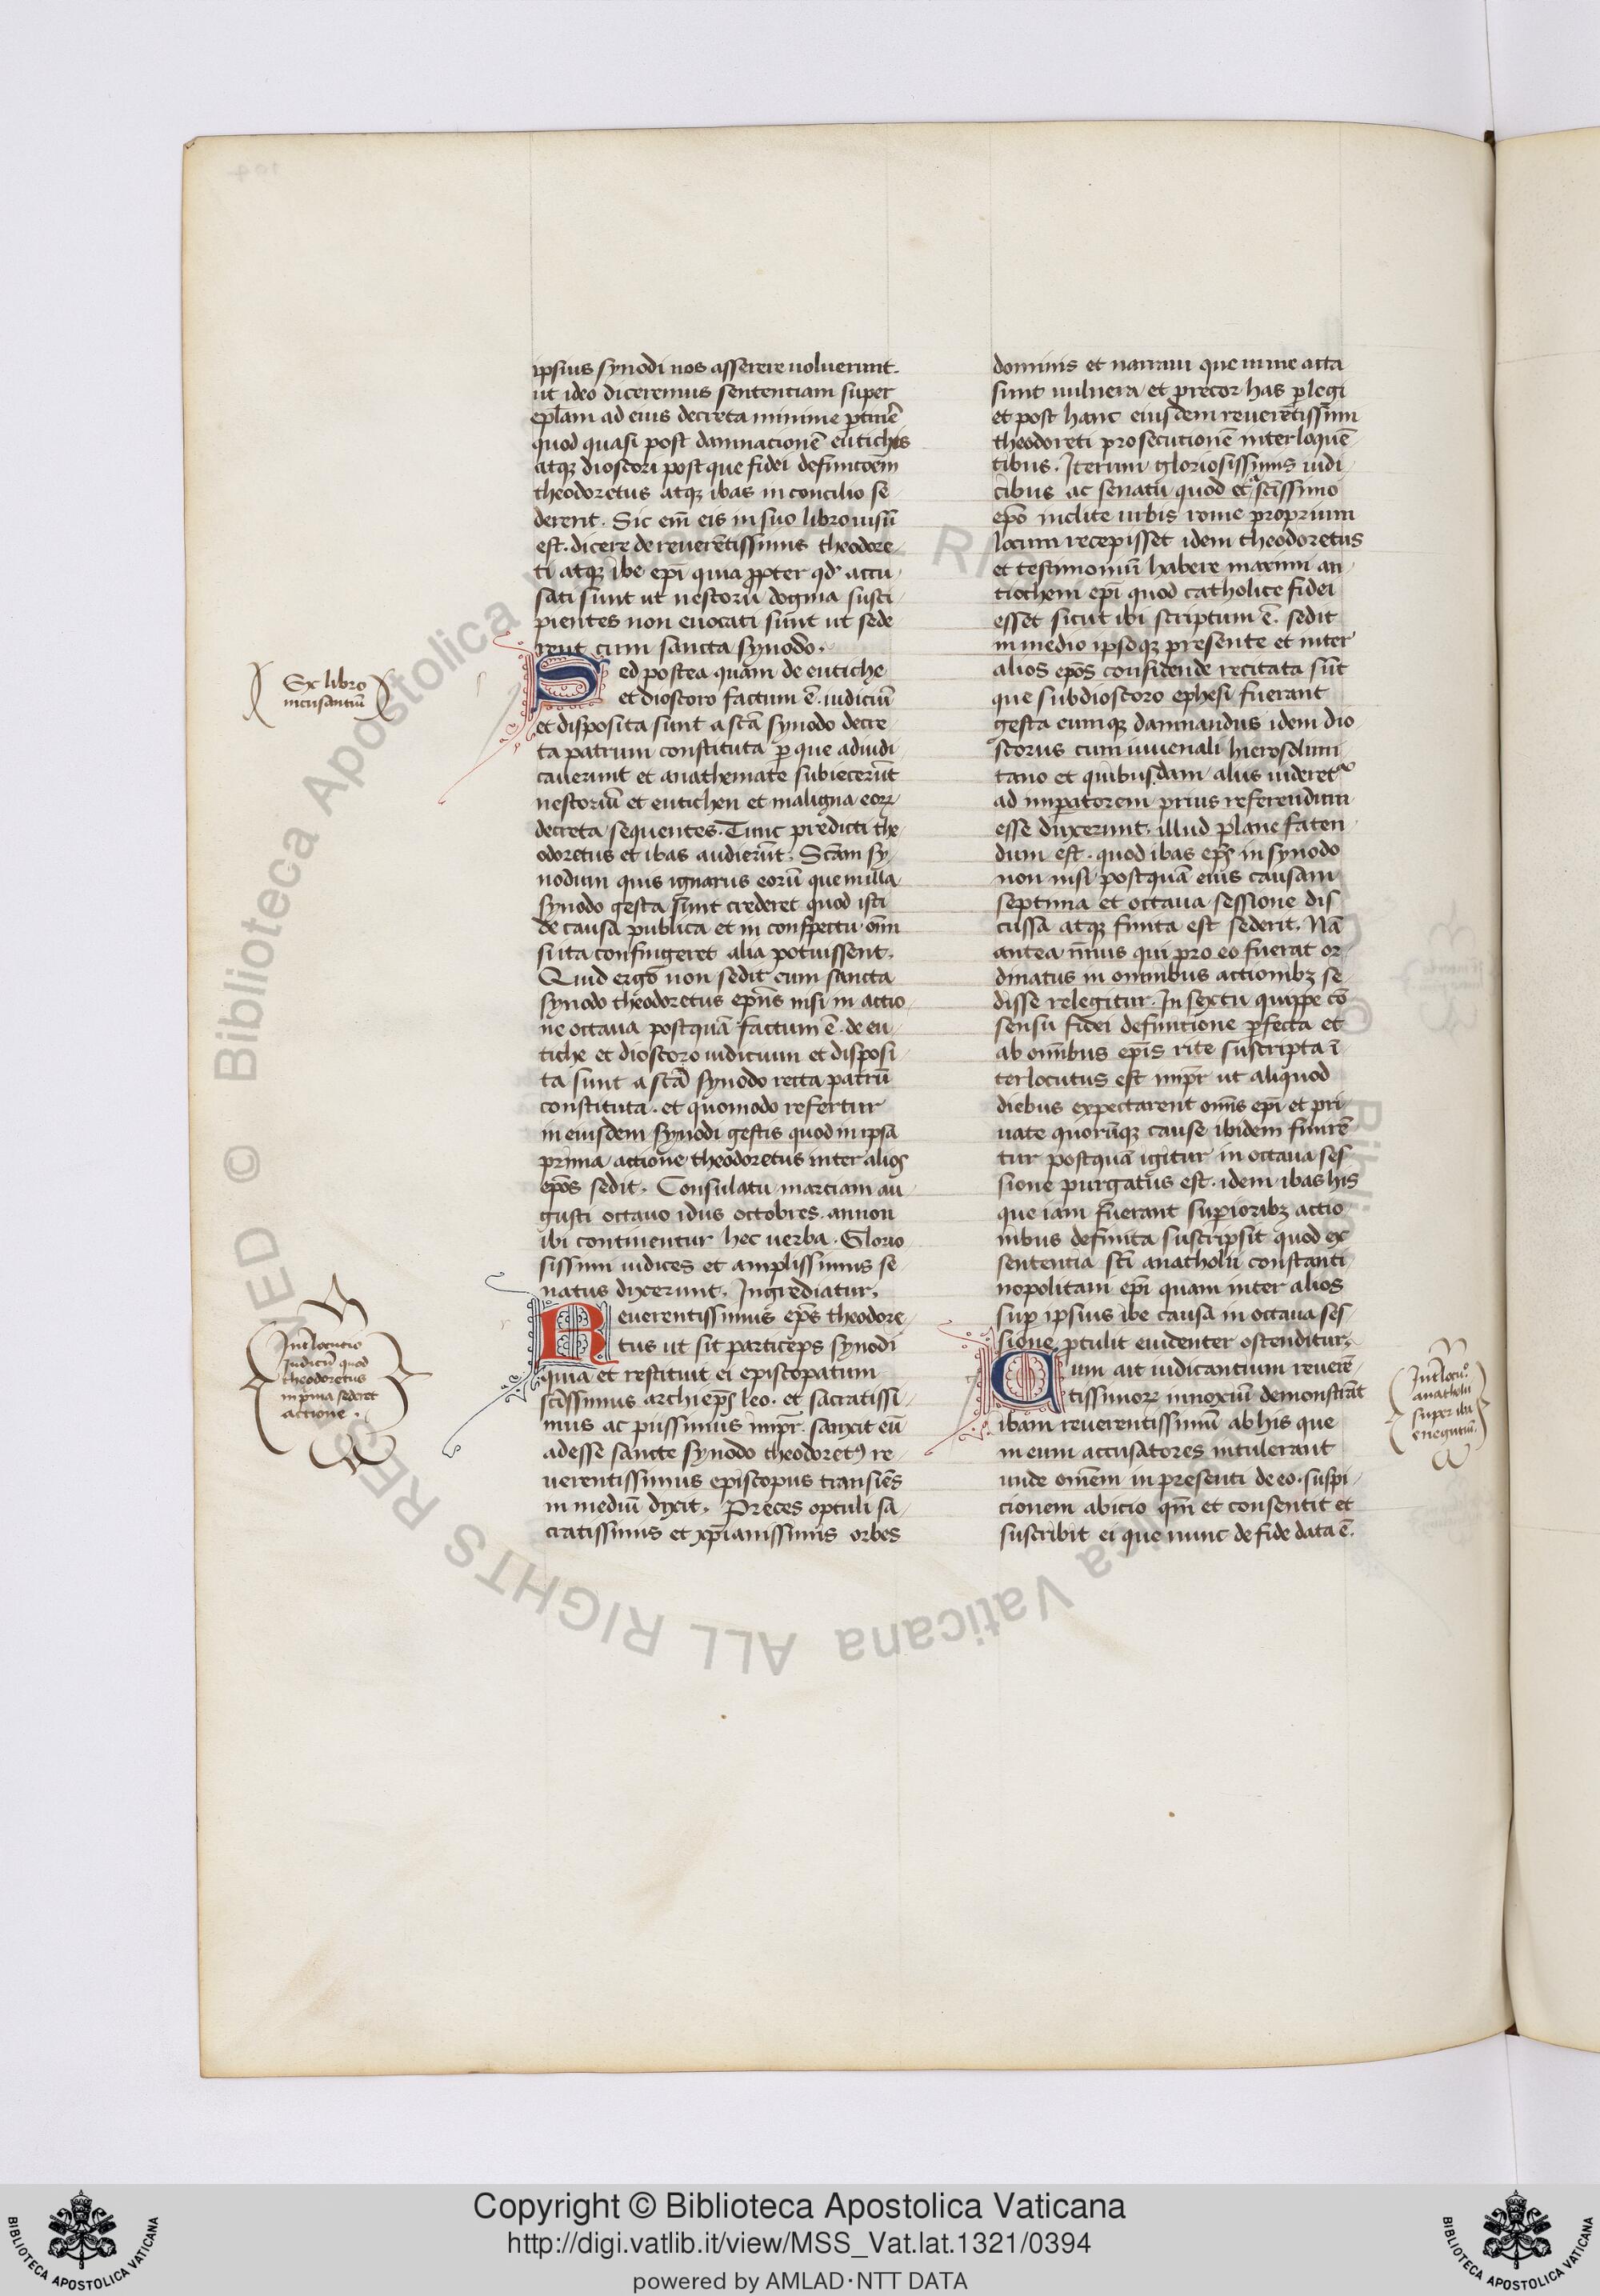 ipsius synodi nos asserere uoluerunt.
ut ideo diceremus sententiam super
epl̄am ad eius decreta minime ptinē
quod quasi post damnacionē eutichis
atqꝫ dioscori post que fidei definitōem
theodoretus atqꝫ ibas in concilio se
derent. Sic em̄ eis in suo libro uisū
est. dicere de reuerētissimis theodore
ti atqꝫ ibe ep̄i quia ꝓpter qd' accu
sati sunt ut nestorii dogma susci
pientes non euocati sunt ut sede
rent cum sancta synodo.
Sed postea quam de eutiche
et dioscoro factum ē. iudiciū
et disposita sunt a sc̄ā synodo decre
ta patrum constituta p que adiudi
cauerunt et anathemate subiecerūt
nestoriū et eutichen et maligna eoꝝ
decreta sequentes. Tunc predicti the
odoretus et ibas audierūt. Sc̄am sy
nodum quis ignarus eorū que in illa
synodo gesta sunt crederet quod isti
de causa publica et in conspectu om̄i
sita confingeret alia potuissent.
Quid ergo non sedit cum sancta
synodo theodoretus ep̄us nisi in actio
ne octaua postquā factum ē. de eu
tiche et dioscoro iudicium et disposi
ta sunt a sc̄ā synodo recta patrū
constituta. et quomodo refertur
in eiusdem synodi gestis quod in ipsa
prima actione theodoretus inter alios
ep̄os sedit. Consulatu marciani au
gusti octauo idus octobres. annon
ibi continentur hec uerba. Glorio
sissimi iudices et amplissimus se
natus dixerunt. Ingrediatur.
Reuerentissimus ep̄s theodore
tus ut sit particeps synodi
quia et restituit ei episcopatum
sc̄issimus archiep̄s leo. et sacratissi
mus ac piissimus imp̄r. sanxit eū
adesse sancte synodo theodoretꝰ re
uerentissimus episcopus transiēs
in mediū dixit. Preces optuli sa
cratissimis et xp̄ianissimis orbes
Ex libro
incusantiū
Int̄locutio
Iudicū quod
theodoretus
in p̄ima sederet
actione.
dominis et narraui que in me acta
sunt uulnera et precor has p̄legi
et post hanc eiusdem reuerētissimi
theodoreti prosecutionē interloquē
tibus. Iterum gloriosissimis iudi
cibus ac senatu quod et a sc̄issimo
ep̄o inclite urbis rome proprium
locum recepisset idem theodoretus
et testimoniū habere maximi an
tiocheni ep̄i quod catholice fidei
esset sicut ibi scriptum ē. sedit
in medio ipsoqꝫ presente et inter
alios ep̄os considende recitata sūt
que sub dioscoro ephesi fuerant
gesta cumqꝫ damnandus idem dio
scorus cum iuuenali hierosolimi
tano et quibusdam aliis uideretᵘʳ
ad imp̄atorem prius referendum
esse duxerunt. illud plane faten
dum est. quod ibas ep̄s in synodo
non nisi postquā eius causam
septima et octaua sessione dis
cussa atqꝫ finita est sederit. Nā
antea n̄nius qui pro eo fuerat or
dinatus in omnibus actionibꝫ se
disse relegitur. In sextu quippe cō
sensu fidei definitione p̄fecta et
ab om̄ibus ep̄is rite suscripta ī
terlocutus est imp̄r ut aliquod
diebus expectarent om̄s ep̄i et pri
uate quorūqꝫ cause ibidem finirē
tur postquā igitur in octaua ses
sione purgatus est. idem ibas his
que iam fuerant superioribꝫ actio
nibus definita suscripsit quod ex
sententia sc̄i anatholii constanti
nopolitani ep̄i quam inter alios
sup ipsius ibe causa in octaua ses
sione ptulit euidenter ostenditur.
Cum ait iudicantium reuerē
tissimoꝝ innoxiū demonstrāt
ibam reuerentissimū ab his que
in eum accusatores intulerant
unde om̄em in presenti de eo. suspi
cionem abicio qm̄ et consentit et
suscribit ei que nunc de fide data ē.
Int̄locuᵒ
anatholii
super iba
e negatiū.
Copyright © Biblioteca Apostolica Vaticana
http://digi.vatlib.it/view/MSS_Vat.lat.1321/0394
powered by AMLAD·NTT DATA
BIBLIOTECA APOSTOLICA VATICANA
BIBLIOTECA APOSTOLICA VATICANA